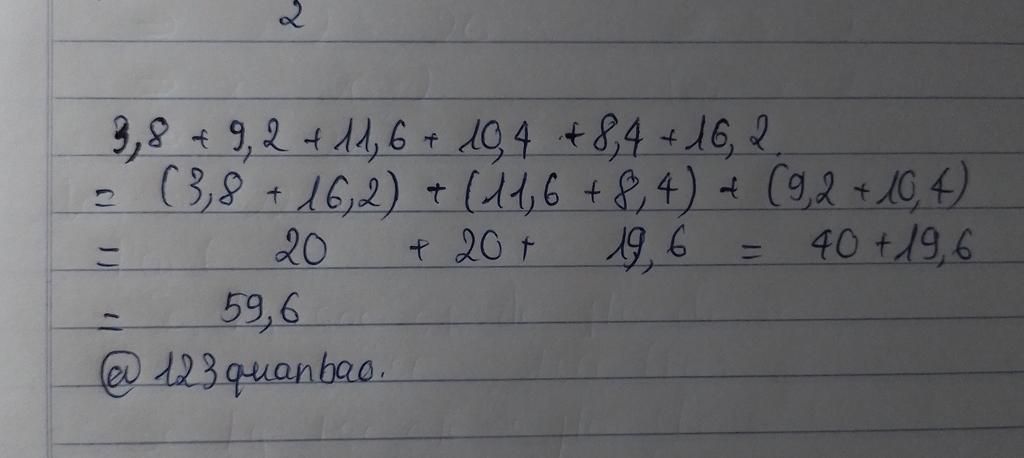 2
3,8 + 9,2 + 11,6 + 10,4 + 8,4 + 16,2.
= (3,8 + 16,2) + (11,6 + 8,4) + (9,2 + 10,4)
= 20 + 20 + 19,6 = 40 + 19,6
= 59,6
@ 123quanbao.